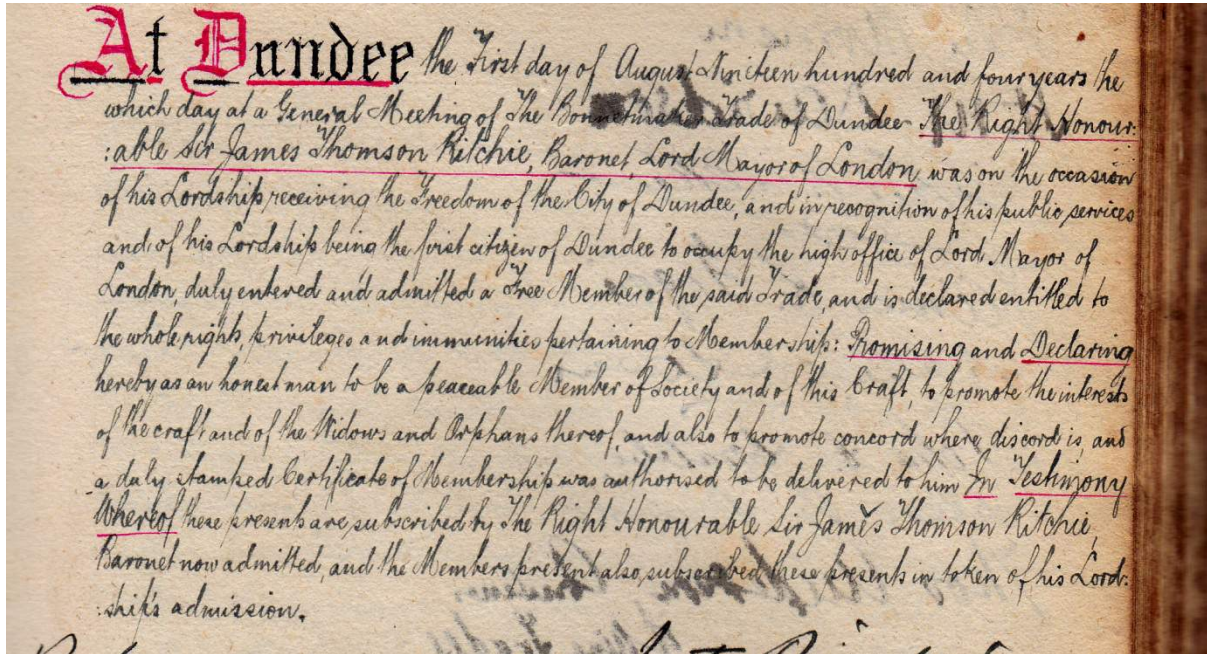 At Dundee the First day of August Nineteen hundred and four years the
which day at a General Meeting of The Bonnetmaker Trade of Dundee The Right Honour:
:able Sir James Thomson Ritchie, Baronet, Lord Mayor of London was on the occasion
of his Lordship receiving the Freedom of the City of Dundee, and in recognition of his public services
and of his Lordship being the first citizen of Dundee to occupy the high office of Lord Mayor of
London, duly entered and admitted a Free Member of the said Trade, and is declared entitled to
the whole rights, privileges and immunities pertaining to Membership: Promising and Declaring
hereby as an honest man to be a peaceable Member of Society and of this Craft, to promote the interests
of the craft and of the Widows and Orphans thereof, and also to promote concord where discord is, and
a duly stamped Certificate of Membership was authorised to be delivered to him In Testimony
Whereof these presents are subscribed by The Right Honourable Sir James Thomson Ritchie,
Baronet now admitted, and the Members present also, subscribed these presents in token of his Lord:
:ship's admission.